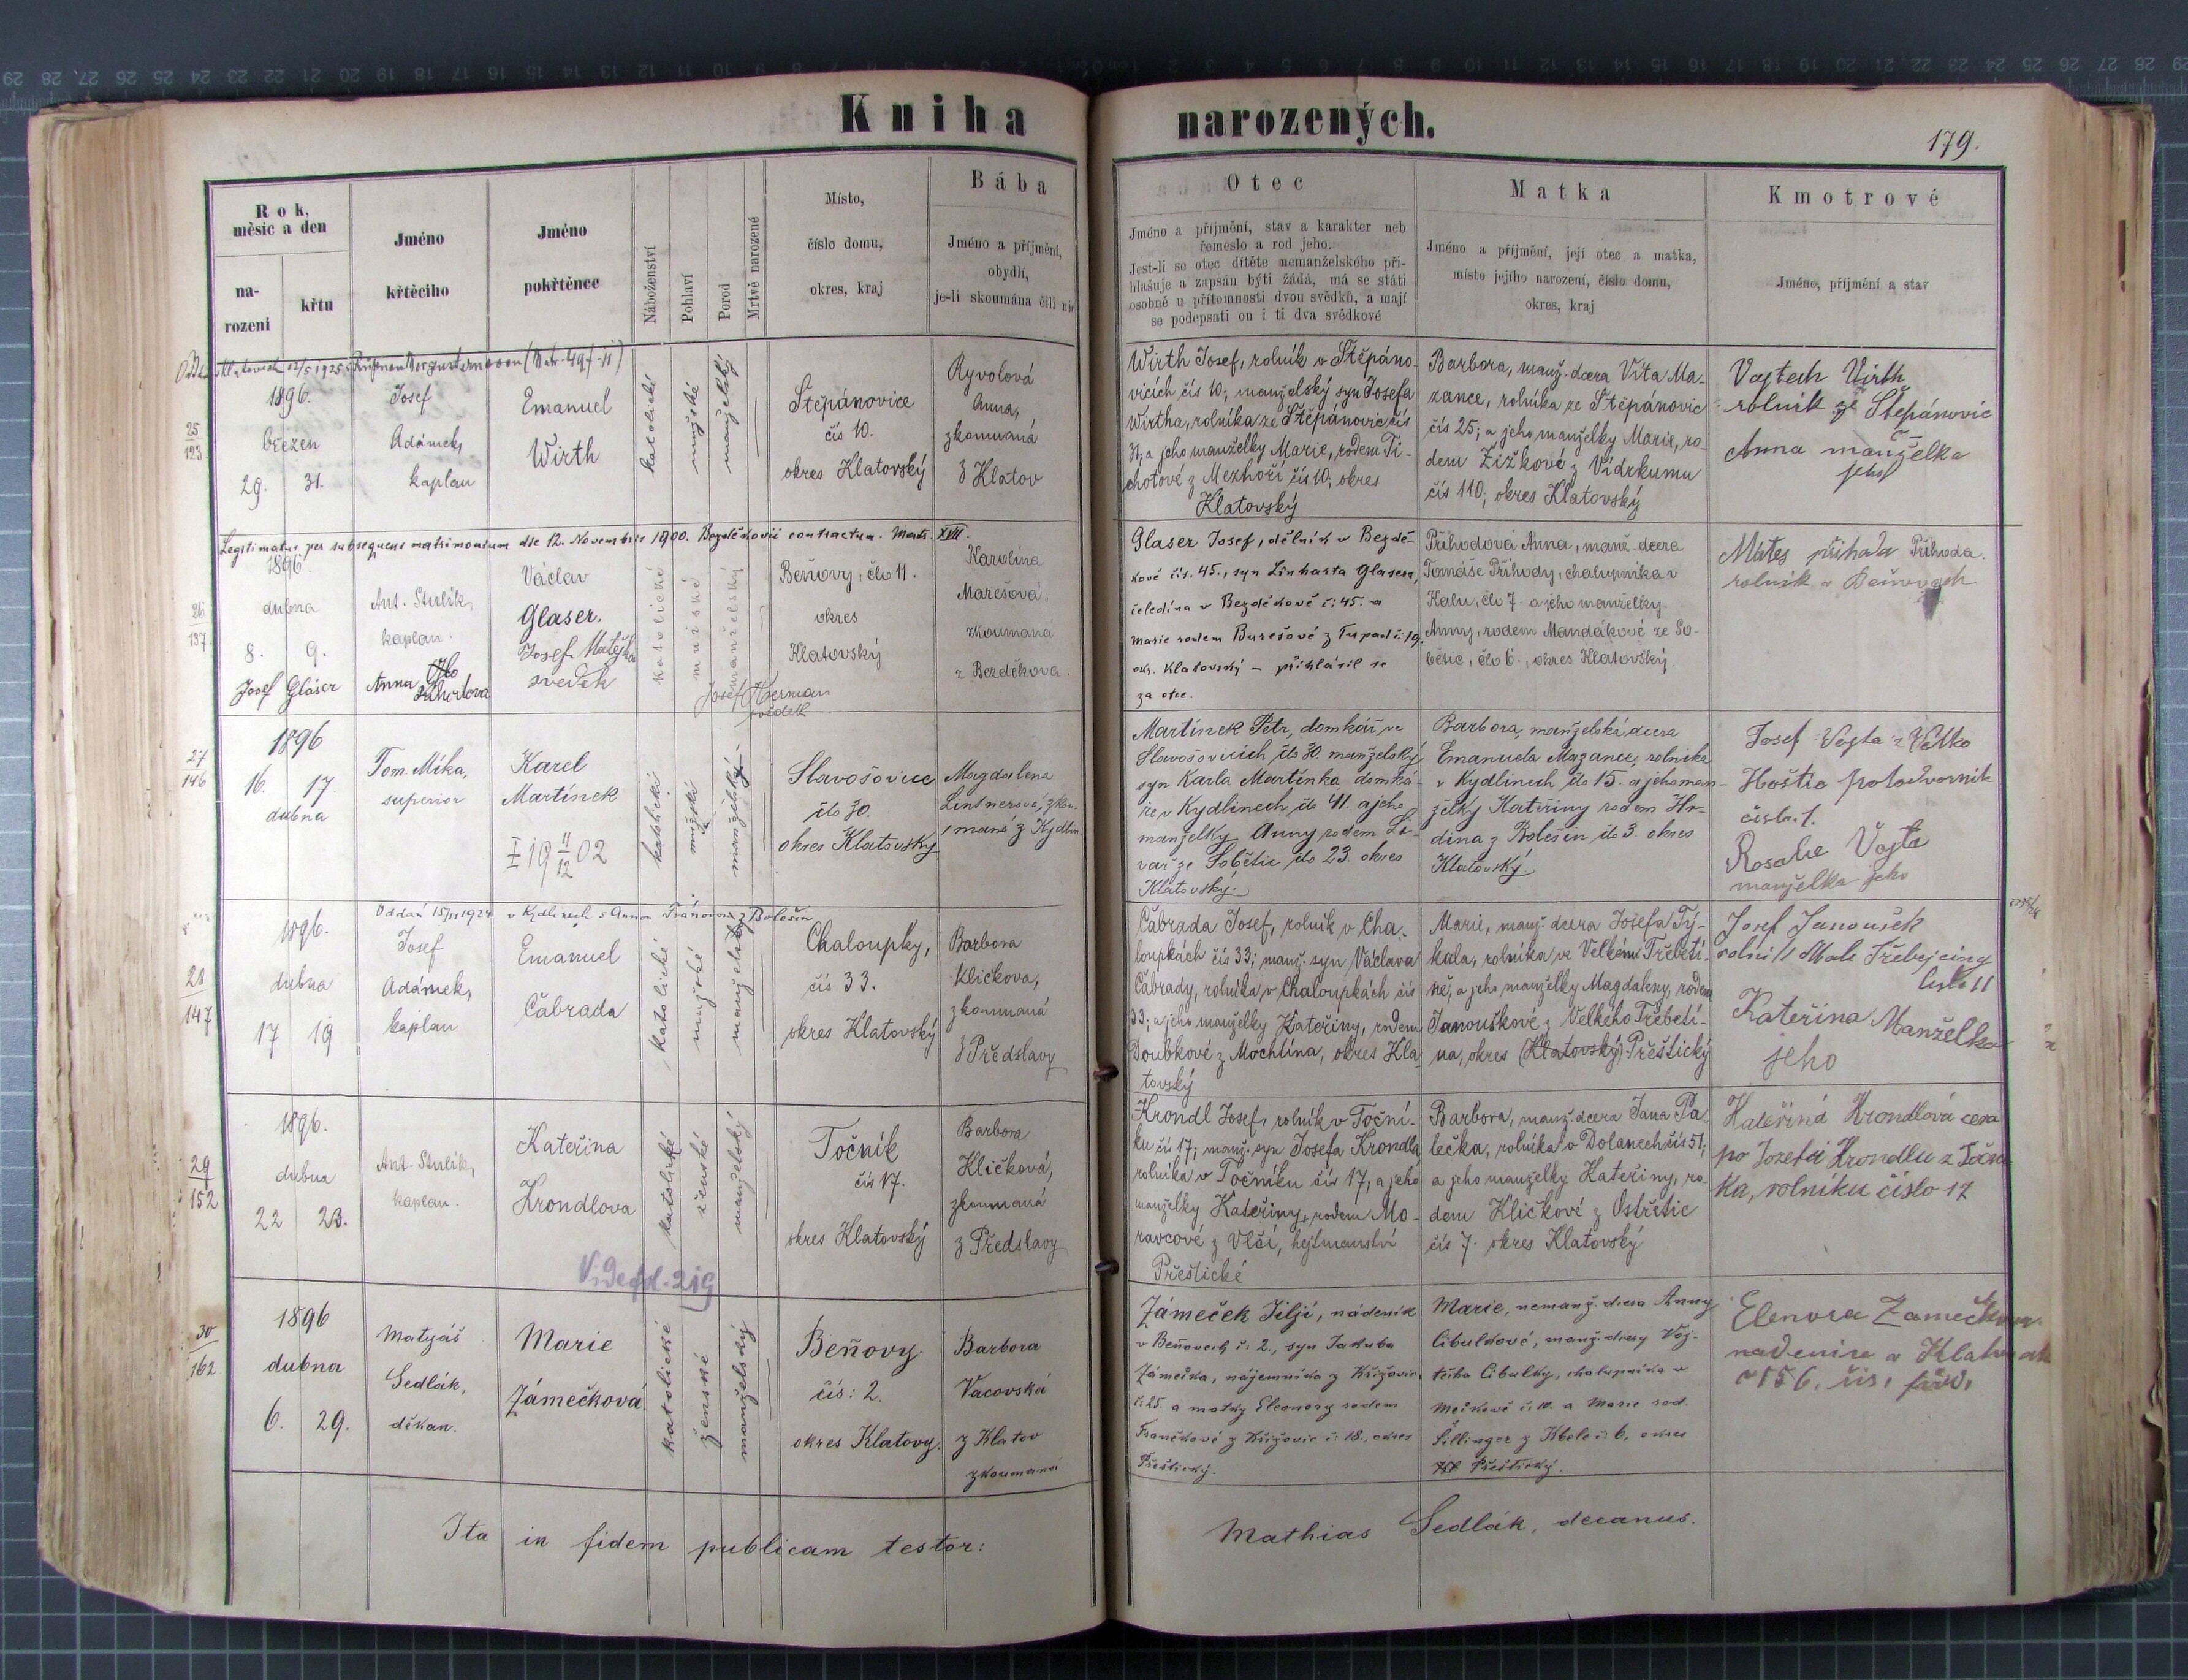 Kniha narozených.
179.
Rok,
měsíc a den
na-
rození
křtu
Jméno
křtěcího
Jméno
pokřtěnce
Náboženství
Pohlaví
Porod
Mrtvě narozené
Místo,
číslo domu,
okres, kraj
Bába
Jméno a příjmění,
obydlí,
je-li skoumána čili nic
Otec
Jméno a příjmění, stav a karakter neb
řemeslo a rod jeho.
Jest-li se otec dítěte nemanželského při-
hlašuje a zapsán býti žádá, má se státi
osobně u přítomnosti dvou svědků, a mají
se podepsati on i ti dva svědkové
Matka
Jméno a příjmění, její otec a matka,
místo jejího narození, číslo domu,
okres, kraj
Kmotrové
Jméno, příjmění a stav
12/5 1925
25
123
1896.
březen
29. 31.
Josef
Adámek,
kaplan
Emanuel
Wirth
katolické
mužské
manželský
Štěpánovice
čís 10.
okres Klatovský
Ryvolová
Anna,
zkoumaná
z Klatov
Wirth Josef, rolník v Štěpáno-
vicích čís 10; manželský syn Josefa
Wirtha, rolníka ze Štěpánovic čís
31, a jeho manželky Marie, rodem Ti-
chotové z Mezhoří čís 10, okres
Klatovský
Barbora, manž. dcera Víta Ma-
zance, rolníka ze Štěpánovic
čís 25; a jeho manželky Marie, ro-
dem Žižkové z Vidrkumu
čís 110; okres Klatovský
Vojtech Wirth
rolník ze Štepánovic
Anna manželka
jeho
Legitimatus per subsequens matrimonium die 12. Novembris 1900. Bezděkovii contractum. Matr. XVII.
26
137
1896.
dubna
8. 9.
Ant. Stulík,
kaplan.
Václav
Glaser.
Josef Matějka
svedek
Josef Gláser
Anna
Josef Herman
svědek
katolické
mužské
manželský
Beňovy, člo 11.
okres
Klatovský
Karolina
Marešová,
zkoumaná
z Bezděkova.
Glaser Josef, dělník v Bezdě-
kově čís. 45., syn Linharta Glasera,
čeledína v Bezděkově č: 45. a
Marie rodem Burešové z Tupadl č: 19.
okr. Klatovský – přihlásil se
za otce.
Příhodová Anna, manž. dcera
Tomáše Příhody, chalupníka v
Kalu, člo 7. a jeho manželky
Anny, rodem Mandákové ze So-
bětic, člo 6., okres Klatovský.
Mates přihoda Příhoda.
rolník v Beňovech
27
146
1896
16. 17.
dubna
Tom. Míka,
superior
Karel
Martínek
I 19 11/12 02
katolické
mužské
manželský
Slavošovice
čís 30.
okres Klatovský
Magdalena
Lintnerová, zkou-
maná z Kydlin
Martínek Petr, domkář ve
Slavošovicích, čís 30. manželský
syn Karla Martínka, domká-
ře v Kydlinech čís 41. a jeho
manželky Anny rodem Li-
var ze Sobětic čís 23. okres
Klatovský.
Barbora, manželská dcera
Emanuela Mazance, rolníka
v Kydlinech čís 15. a jeho man-
želky Kateřiny rodem Hr-
dina z Bolešin čís 3. okres
Klatovský.
Josef Vojta z Velko
Hoštic polodvorník
číslo. 1.
Rosalie Vojta
manželka jeho
Oddán 15/11 1924 v Kydlinech s Annou Fránovou z Bolešin
28
147
1896.
dubna
17 19
Josef
Adámek,
kaplan
Emanuel
Čabrada
katolické
mužské
manželský
Chaloupky,
čís 33.
okres Klatovský
Barbora
Kličkova,
zkoumaná
z Předslavy
Čabrada Josef, rolník v Cha-
loupkách čís 33; manž. syn Václava
Čabrady, rolníka v Chaloupkách čís
33; a jeho manželky Kateřiny, rodem
Doubkové z Mochtína, okres Kla
tovský
Marie, manž. dcera Josefa Ty-
kala, rolníka, ve Velkém Třebetí-
ně, a jeho manželky Magdaleny, rodem
Janouškové z Velkého Třebetí-
na, okres (Klatovský) Přeštický
Josef Janoušek
Číslo 11
Kateřina Manželka
jeho
29
152
1896.
dubna
22 23.
Ant. Stulík,
kaplan.
Kateřina
Krondlova
Vide fol. 219
katolické
ženské
manželský
Točník
čís 17.
okres Klatovský
Barbora
Kličková,
zkoumaná
z Předslavy
Krondl Josef, rolník v Toční-
ku čís 17; manž. syn Josefa Krondla,
rolníka v Točníku čís 17, a jeho
manželky Kateřiny, rodem Mo-
ravcové z Vlčí, hejtmanství
Přeštické
Barbora, manž. dcera Jana Pa-
lečka, rolníka v Dolanech čís 51;
a jeho manželky Kateřiny, ro-
dem Kličkové z Ostřetic
čís 7. okres Klatovský
Kateřiná Krondlová cera
po Jozefu Krondlu z Točni
ka, rolníku číslo 17
30
162
1896
dubna
6. 29.
Matyáš
Sedlák,
děkan.
Marie
Zámečková
katolické
ženské
manželský
Beňovy
čís: 2.
okres Klatovy.
Barbora
Vacovská
z Klatov
zkoumaná
Zámeček Jiljí, nádeník
v Beňovech č: 2., syn Jakuba
Zámečka, nájemníka z Křižovic
č: 25. a matky Eleonory rodem
Frančkové z Křižovic č: 18., okres
Přeštický.
Marie, nemanž. dcera Anny
Cibulkové, manž. dcery Voj-
těcha Cibulky, chalupníka v
Mečkově č: 10. a Marie rod.
Šillinger z Kbele č: 6, okres
Přeštický.
Elenora Zamečkova
nadenice v Klatovech
Ita in fidem publicam testor:
Mathias Sedlák, decanus.